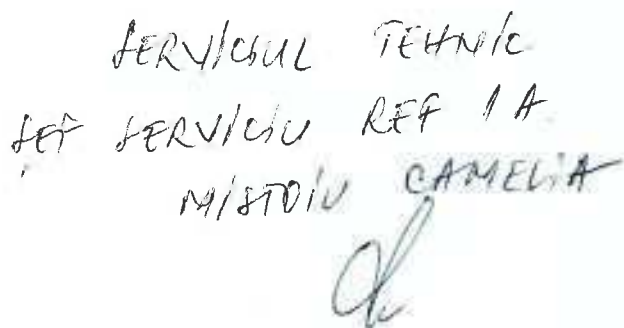 SERVICIUL TEHNIC
ȘEF SERVICIU REF 1A
MISTOIU CAMELIA